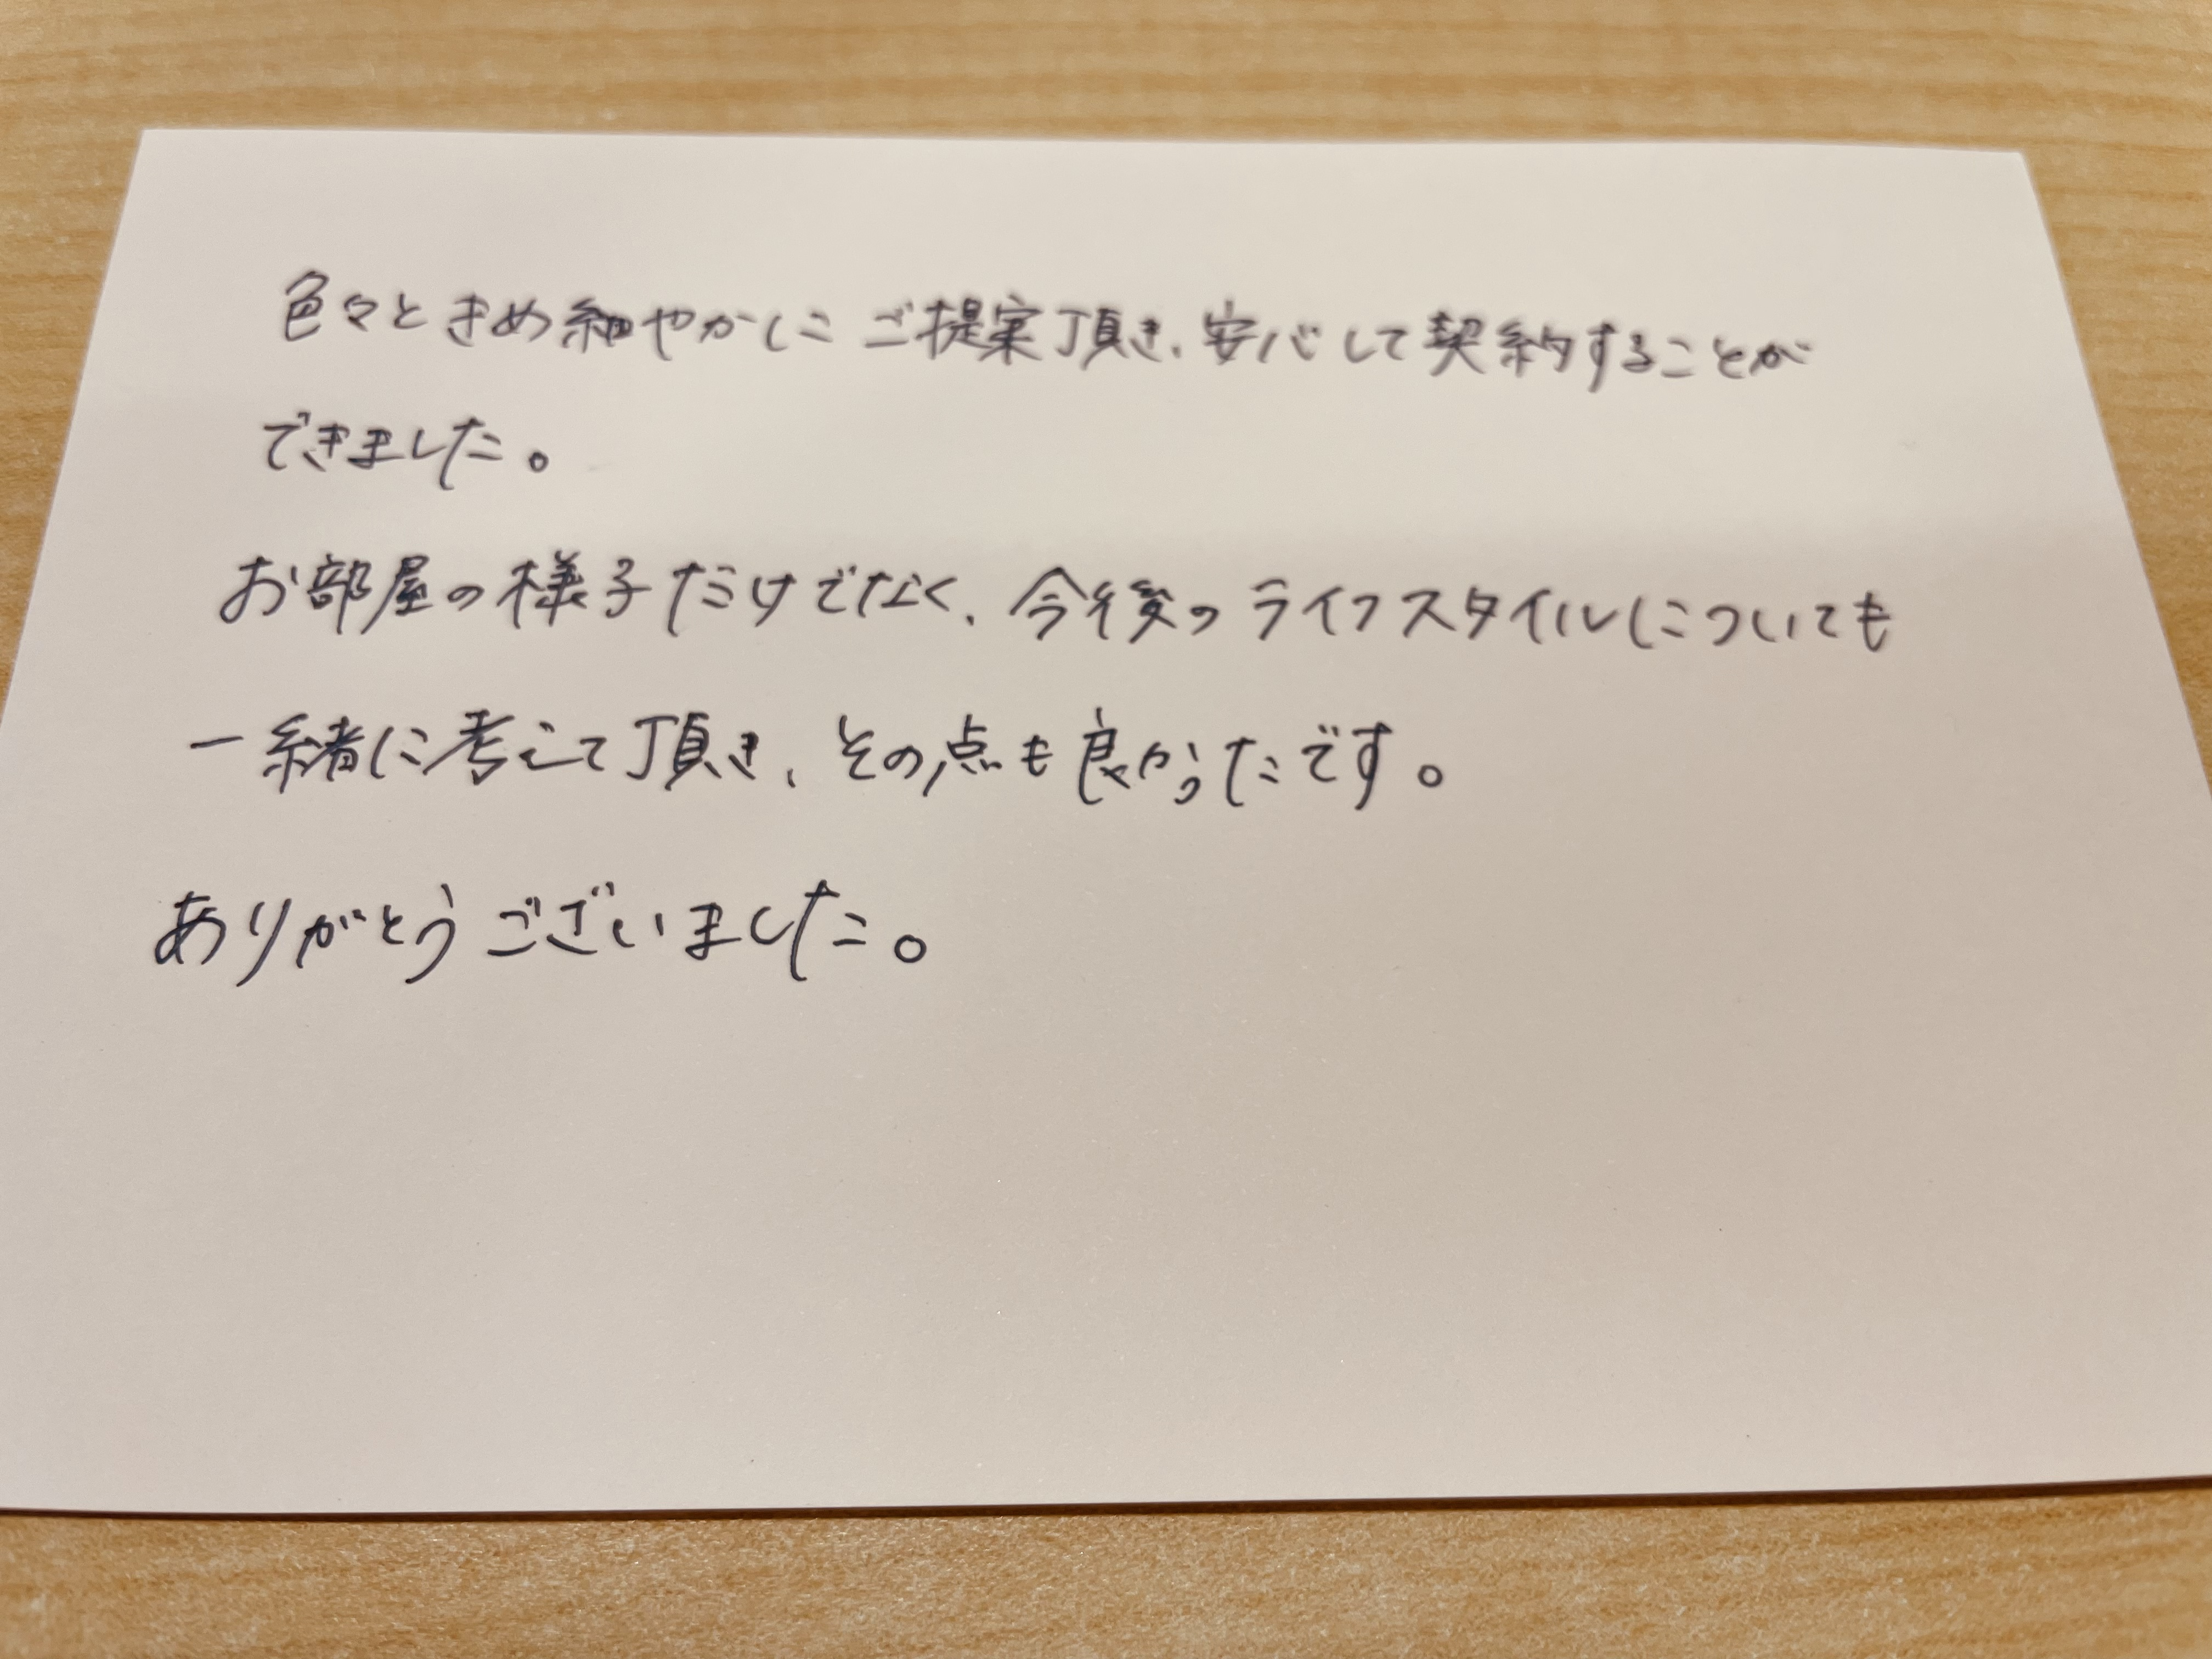 色々ときめ細やかにご提案頂き、安心して契約することが
できました。
お部屋の様子だけでなく、今後のライフスタイルについても
一緒に考えて頂き、その点も良かったです。
ありがとうございました。